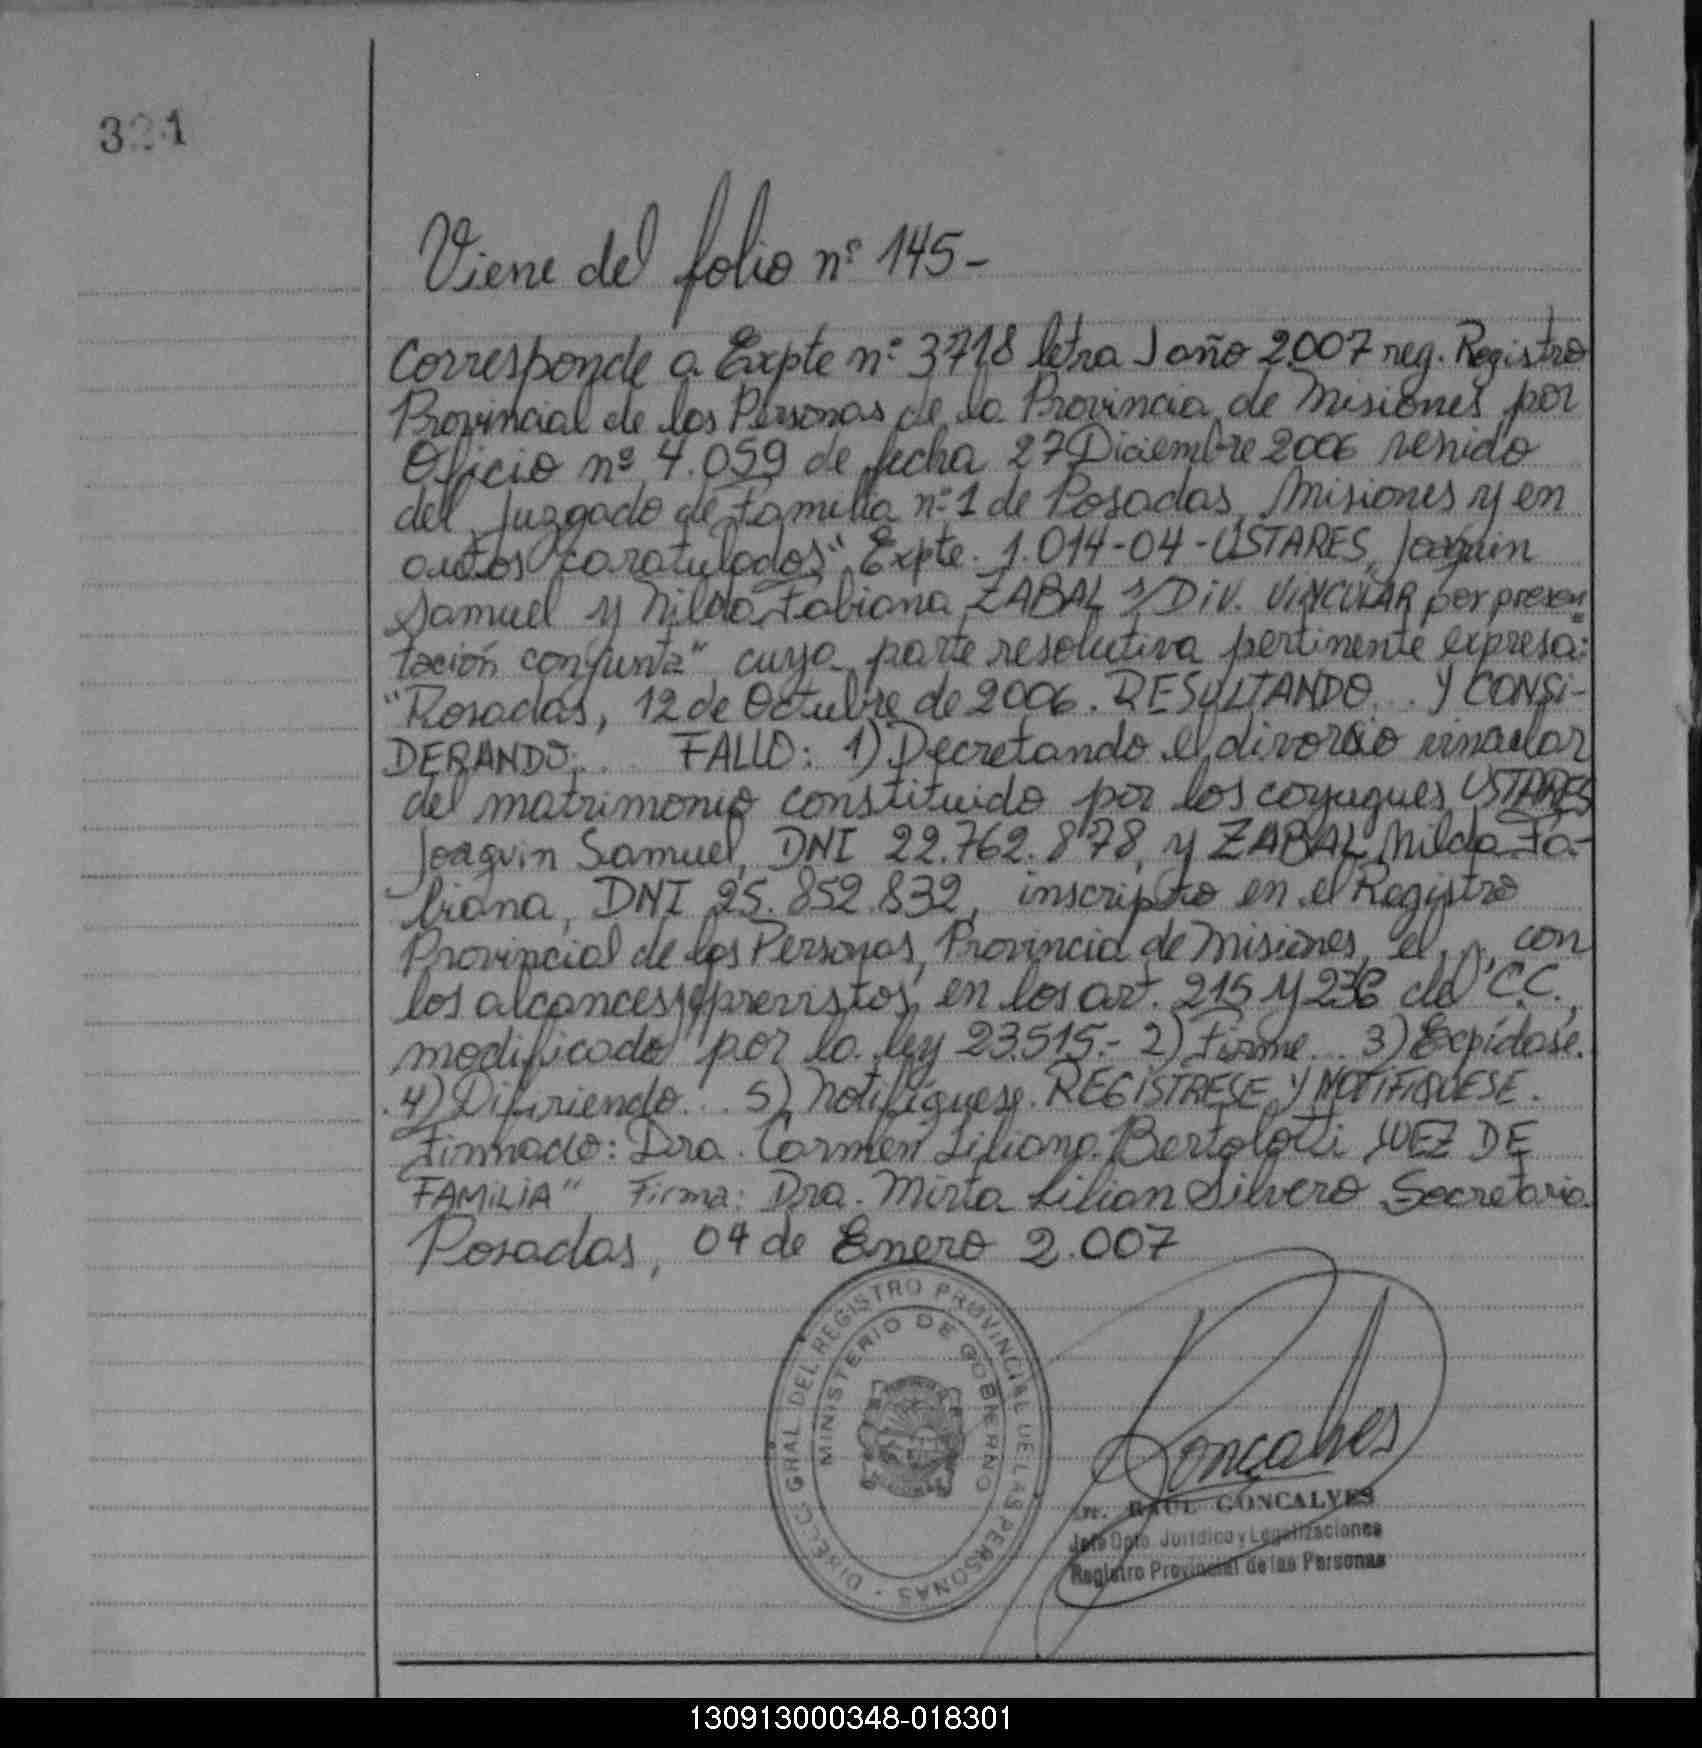 321
Viene del folio nº 145-
Corresponde a Expte nº 3718 letra J año 2007 reg. Registro
Provincial de las Personas de la Provincia de Misiones por
Oficio nº 4.059 de fecha 27 Diciembre 2006 venido
del Juzgado de Familia nº 1 de Posadas, Misiones y en
autos caratulados "Expte. 1.014-04-USTARES, Joaquin
Samuel y Nilda Fabiana ZABAL s/ DIV. VINCULAR por presen
tación conjunta" cuya parte resolutiva pertinente expresa:
"Posadas, 12 de Octubre de 2006. RESULTANDO... Y CONSI-
DERANDO:... FALLO: 1) Decretando el divorcio vincular
del matrimonio constituido por los conyugues USTARES
Joaquin Samuel, DNI 22.762.878, y ZABAL Nilda Fa-
biana, DNI 25.852.832, inscripto en el Registro
Provincial de las Personas, Provincia de Misiones, el... con
los alcances previstos en los art. 215 y 236 del C.C.,
modificado por la ley 23.515.- 2) Firme... 3) Expídase.
4) Difiriendo... 5) Notifíquese. REGISTRESE Y NOTIFIQUESE.
Firmado: Dra. Carmen Liliana Bertolotti JUEZ DE
FAMILIA" Firma: Dra. Mirta Lilian Silvero Secretaria.
Posadas, 04 de Enero 2.007
DIRECC GRAL. DEL REGISTRO PROVINCIAL DE LAS PERSONAS -
MINISTERIO DE GOBIERNO
Goncalves
RAUL GONCALVES
Jefe Dpto. Jurídico y Legalizaciones
Registro Provincial de las Personas
130913000348-018301